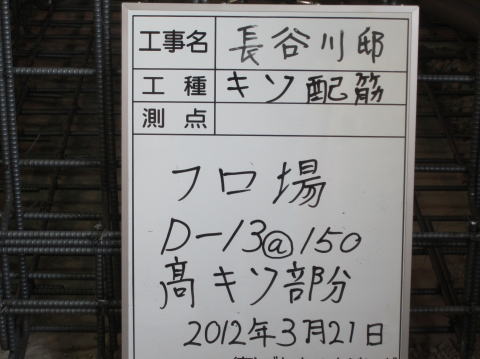 工事名 長谷川邸
工種 キソ配筋
測点
フロ場
D-13@150
高キソ部分
2012年3月21日